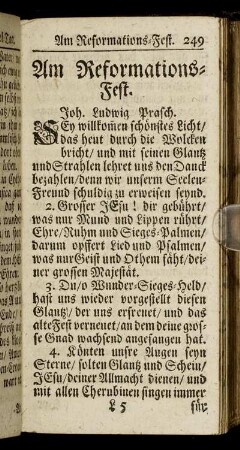 Am Reformations-Fest. 249
Am Reformations-
Fest.
Joh. Ludwig Prasch.
SEy willkomen schönstes Licht/
das heut durch die Wolcken
bricht/ und mit seinen Glantz
und Strahlen lehret uns den Danck
bezahlen/ denn wir unserm Seelen-
Freund schuldig zu erweisen seynd.
2. Grosser JEsu! dir gebührt/
was nur Mund und Lippen rührt/
Ehre/ Ruhm und Sieges-Palmen/
darum opffert Lied und Psalmen/
was nur Geist und Othem fäht/ dei-
ner grossen Majestät.
3. Du/ o Wunder-Sieges-Held/
hast uns wieder vorgestellt diesen
Glantz/ der uns erfreuet/ und das
alte Fest verneuet/ an dem deine gros-
se Gnad wachsend angefangen hat.
4. Könten unsre Augen seyn
Sterne/ solten Glantz und Schein/
JEsu/ deiner Allmacht dienen/ und
mit allen Cherubinen singen immer
L 5 für